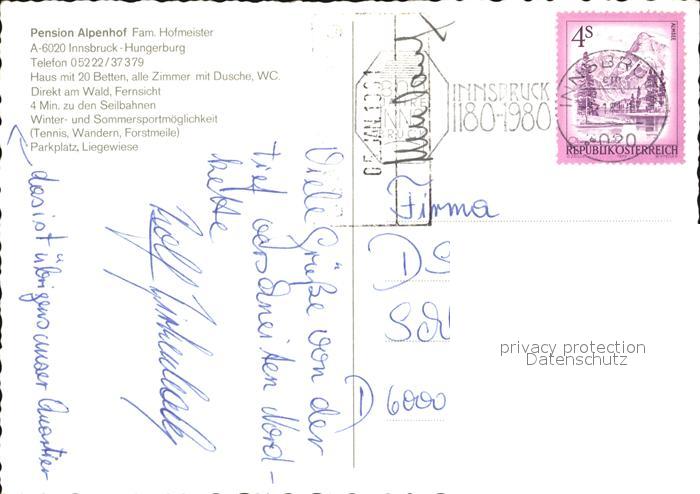 Pension Alpenhof Fam. Hofmeister
A-6020 Innsbruck-Hungerburg
Telefon 05222/37379
Haus mit 20 Betten, alle Zimmer mit Dusche, WC.
Direkt am Wald, Fernsicht
4 Min. zu den Seilbahnen
Winter- und Sommersportmöglichkeit
(Tennis, Wandern, Forstmeile)
Parkplatz, Liegewiese
das ist übrigens unser Quartier
Viele Grüße von der
tief verschneiten Nord-
kette
Rolf
05.JAN.1981
INNSBRUCK
1180-1980
4s
INNSBRU
6020
REPUBLIK ÖSTERREICH
Firma
D S
SCH
D 6000
privacy protection
Datenschutz